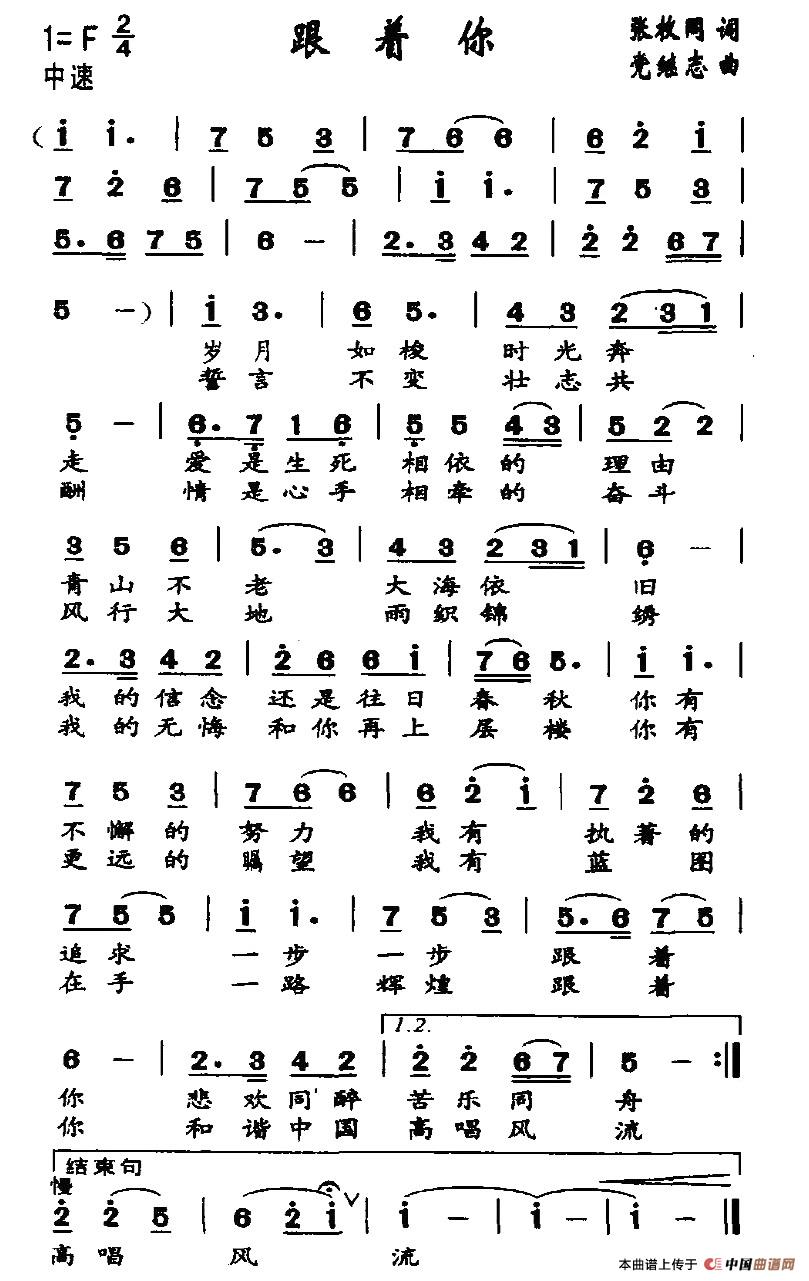 1=F 2/4 跟着你 张枚同 词
中速 党继志 曲
( i i. | 7 5 3 | 7 6 6 | 6 2 i |
7 2 6 | 7 5 5 | i i. | 7 5 3 |
5. 6 7 5 | 6 － | 2. 3 4 2 | 2 2 6 7 |
5 － ) | i 3. | 6 5. | 4 3 2 3 1 |
岁月 如梭 时光奔
誓言 不变 壮志共
5 － | 6. 7 1 6 | 5 5 4 3 | 5 2 2 |
走 爱是生死 相依的 理由
酬 情是心手 相牵的 奋斗
3 5 6 | 5. 3 | 4 3 2 3 1 | 6 － |
青山不老 大海依 旧
风行大地 雨织锦 绣
2. 3 4 2 | 2 6 6 i | 7 6 5. | i i. |
我的信念 还是往日 春秋 你有
我的无悔 和你再上 层楼 你有
7 5 3 | 7 6 6 | 6 2 i | 7 2 6 |
不懈的 努力 我有 执著的
更远的 瞩望 我有 蓝图
7 5 5 | i i. | 7 5 3 | 5. 6 7 5 |
追求 一步 一步 跟着
在手 一路 辉煌 跟着
1.2.
6 － | 2. 3 4 2 | 2 2 6 7 | 5 － :‖
你 悲欢同醉 苦乐同 舟
你 和谐中国 高唱风 流
结束句
慢
2 2 5 | 6 2 i ∨ | i － | i － | i － ‖
高唱 风 流
本曲谱上传于 中国曲谱网